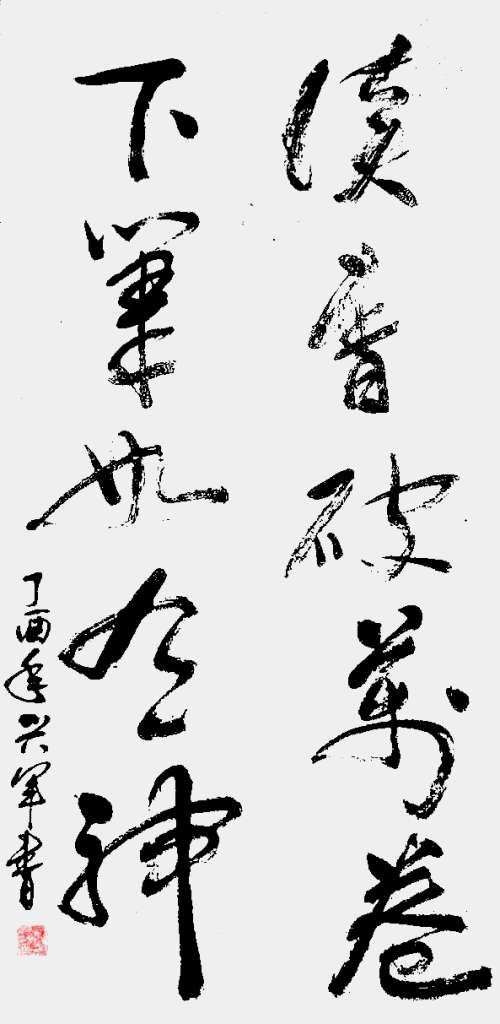 读书破萬卷
下筆如有神
丁酉年兴军書